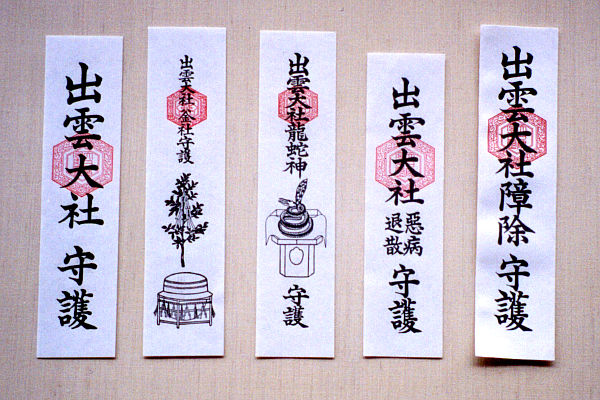 出雲大社 守護
出雲大社 釜社守護
出雲大社龍蛇神
守護
出雲大社
惡病
退散
守護
出雲大社障除 守護